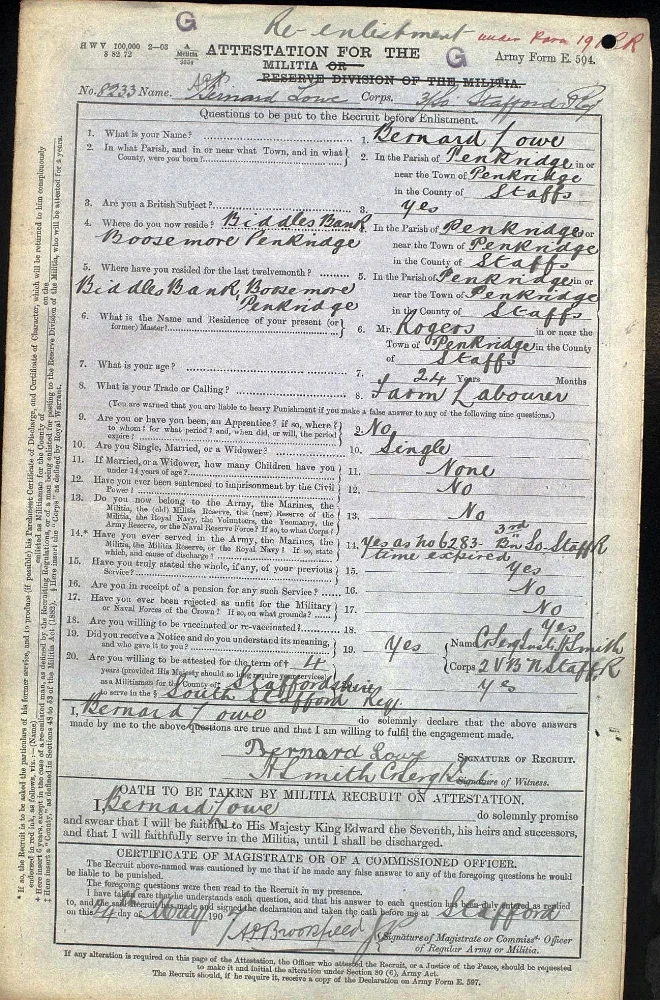 G
Re-enlistment
under Para 19
H W V 100,000 2—03
ATTESTATION FOR THE
G
Army Form E. 504.
MILITIA OR
RESERVE DIVISION OF THE MILITIA.
No. 8233 Name. Bernard Lowe Corps. Stafford
Questions to be put to the Recruit before Enlistment.
1. What is your Name? 1. Bernard Lowe
2. In what Parish, and in or near what Town, and in what County, were you born? 2. In the Parish of Penkridge in or
near the Town of Penkridge
in the County of Staffs
3. Are you a British Subject? 3. Yes
4. Where do you now reside? Biddles Bank 4. In the Parish of Penkridge or
Boosemore Penkridge near the Town of Penkridge
in the County of Staffs
5. Where have you resided for the last twelvemonth? 5. In the Parish of Penkridge in or
Biddles Bank, Boosemore near the Town of Penkridge
Penkridge in the County of Staffs
6. What is the Name and Residence of your present (or former) Master? 6. Mr. Rogers in or near the
Town of Penkridge in the County
of Staffs
7. What is your age? 7. 24 Years Months
8. What is your Trade or Calling? 8. Farm Labourer
(You are warned that you are liable to heavy Punishment if you make a false answer to any of the following nine questions.)
9. Are you or have you been, an Apprentice? if so, where? to whom? for what period? and, when did, or will, the period expire? 9. No
10. Are you Single, Married, or a Widower? 10. Single
11. If Married, or a Widower, how many Children have you under 14 years of age? 11. None
12. Have you ever been sentenced to imprisonment by the Civil Power? 12. No
13. Do you now belong to the Army, the Marines, the Militia, the (old) Militia Reserve, the (new) Reserve of the Militia, the Royal Navy, the Volunteers, the Yeomanry, the Army Reserve, or the Naval Reserve Force? If so, to what Corps? 13. No
14.* Have you ever served in the Army, the Marines, the Militia, the Militia Reserve, or the Royal Navy? If so, state which, and cause of discharge 14. Yes as no 6283- 3rd Bn So Staff R
time expired
15. Have you truly stated the whole, if any, of your previous Service? 15. Yes
16. Are you in receipt of a pension for any such Service? 16. No
17. Have you ever been rejected as unfit for the Military or Naval Forces of the Crown? If so, on what grounds? 17. No
18. Are you willing to be vaccinated or re-vaccinated? 18. Yes
19. Did you receive a Notice and do you understand its meaning, and who gave it to you? 19. Yes Name Smith
Corps 2 V B N Staff R
20. Are you willing to be attested for the term of † 4
years (provided His Majesty should so long require your services)
as a Militiaman for the County of Staffordshire
to serve in the § South Stafford Reg. Yes
I, Bernard Lowe do solemnly declare that the above answers
made by me to the above questions are true and that I am willing to fulfil the engagement made.
Bernard Lowe SIGNATURE OF RECRUIT.
H Smith Signature of Witness.
OATH TO BE TAKEN BY MILITIA RECRUIT ON ATTESTATION.
I, Bernard Lowe do solemnly promise
and swear that I will be faithful to His Majesty King Edward the Seventh, his heirs and successors,
and that I will faithfully serve in the Militia, until I shall be discharged.
CERTIFICATE OF MAGISTRATE OR OF A COMMISSIONED OFFICER.
The Recruit above-named was cautioned by me that if he made any false answer to any of the foregoing questions he would
be liable to be punished.
The foregoing questions were then read to the Recruit in my presence.
I have taken care that he understands each question, and that his answer to each question has been duly entered as replied
to, and the said recruit has made and signed the declaration and taken the oath before me at Stafford
on this 14th day of May 190
Signature of Magistrate or Commissd. Officer
of Regular Army or Militia.
If any alteration is required on this page of the Attestation, the Officer who attested the Recruit, or a Justice of the Peace, should be requested
to make it and initial the alteration under Section 80 (6), Army Act.
The Recruit should, if he require it, receive a copy of the Declaration on Army Form E. 597.